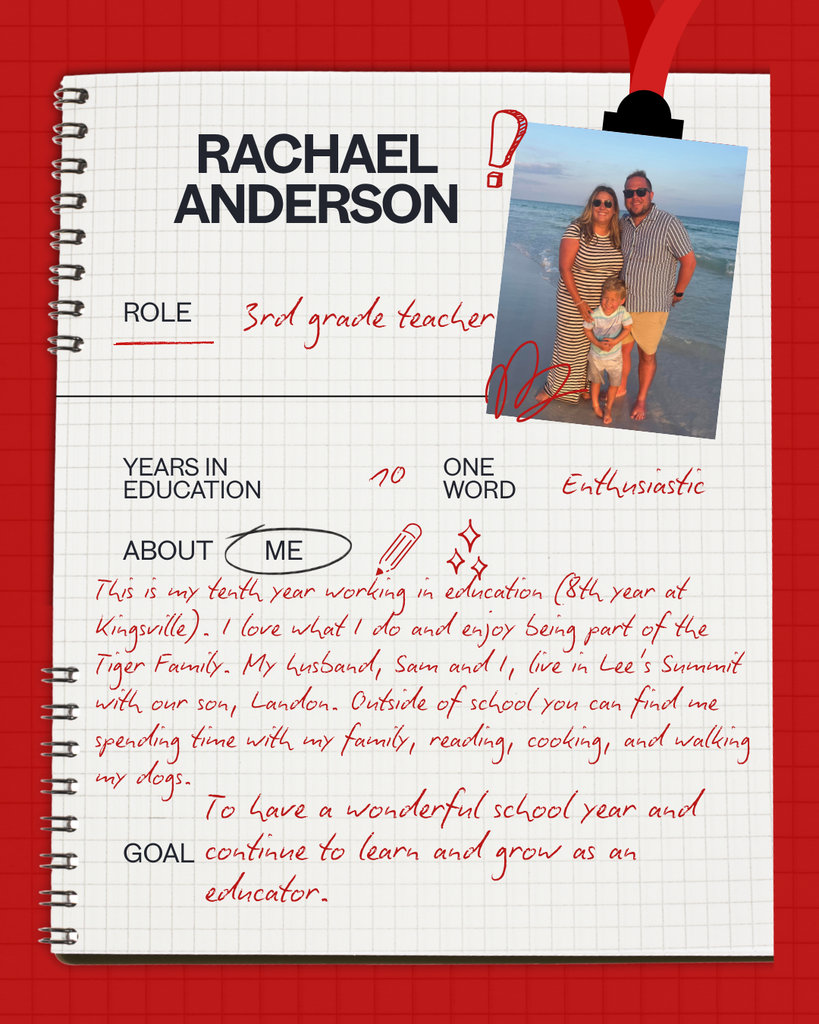 RACHAEL
ANDERSON
ROLE
3rd grade teacher
YEARS IN
EDUCATION
10
ONE
WORD
Enthusiastic
ABOUT ME
This is my tenth year working in education (8th year at
Kingsville). I love what I do and enjoy being part of the
Tiger Family. My husband, Sam and I, live in Lee's Summit
with our son, Landon. Outside of school you can find me
spending time with my family, reading, cooking, and walking
my dogs.
GOAL
To have a wonderful school year and
continue to learn and grow as an
educator.